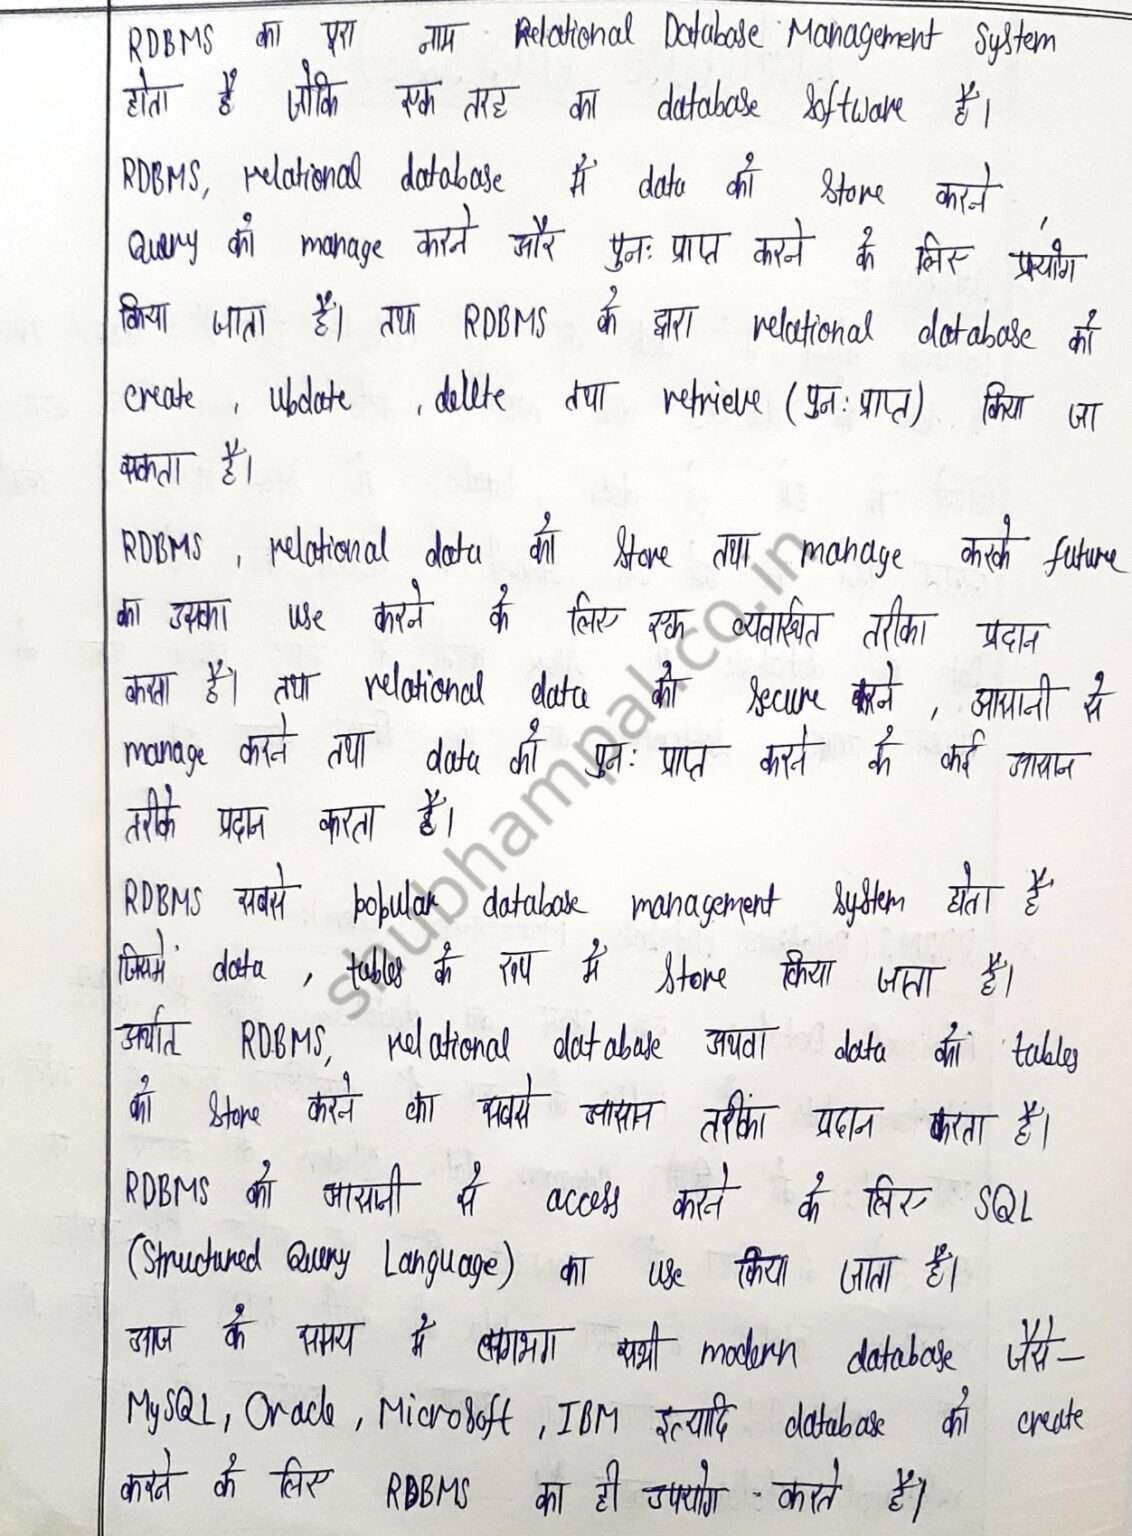 RDBMS का पूरा नाम Relational Database Management System
होता है जोकि एक तरह का database software है।
RDBMS, relational database में data को store करने
Query को manage करने और पुनः प्राप्त करने के लिए प्रयोग
किया जाता है। तथा RDBMS के द्वारा relational database को
create , update , delete तथा retrieve (पुनः प्राप्त) किया जा
सकता है।
RDBMS , relational data को store तथा manage करके future
का उसका use करने के लिए एक व्यवस्थित तरीका प्रदान
करता है। तथा relational data को secure करने , आसानी से
manage करने तथा data को पुनः प्राप्त करने के कई आसान
तरीके प्रदान करता है।
RDBMS सबसे popular database management system होता है
जिसमें data , tables के रूप में store किया जाता है।
अर्थात RDBMS, relational database अथवा data को tables
को store करने का सबसे आसान तरीका प्रदान करता है।
RDBMS को आसानी से access करने के लिए SQL
(Structured Query Language) का use किया जाता है।
आज के समय में लगभग सभी modern database जैसे –
MySQL, Oracle , Microsoft , IBM इत्यादि database को create
करने के लिए RDBMS का ही उपयोग करते है।
shubhampal.co.in